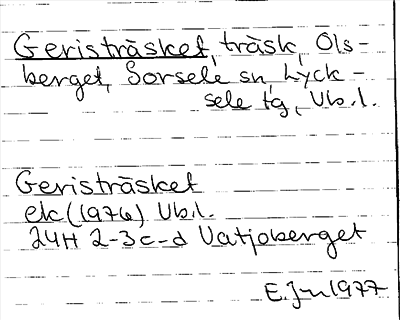 Geristräsket, träsk, Ols-
berget, Sorsele sn, Lyck-
sele tg, Vb.l.
Geristräsket
ek (1976) Vb.l.
24H 2-3c-d Vatjoberget
E.J-n 1977